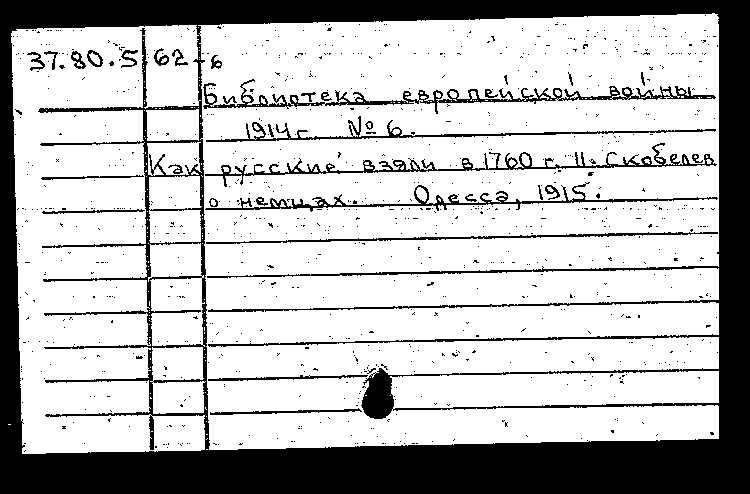 37.80.5 62-6
Библиотека европейской войны
1914 г. № 6.
Как русские взяли в 1760 г. II. Скобелев
о немцах. Одесса, 1915.